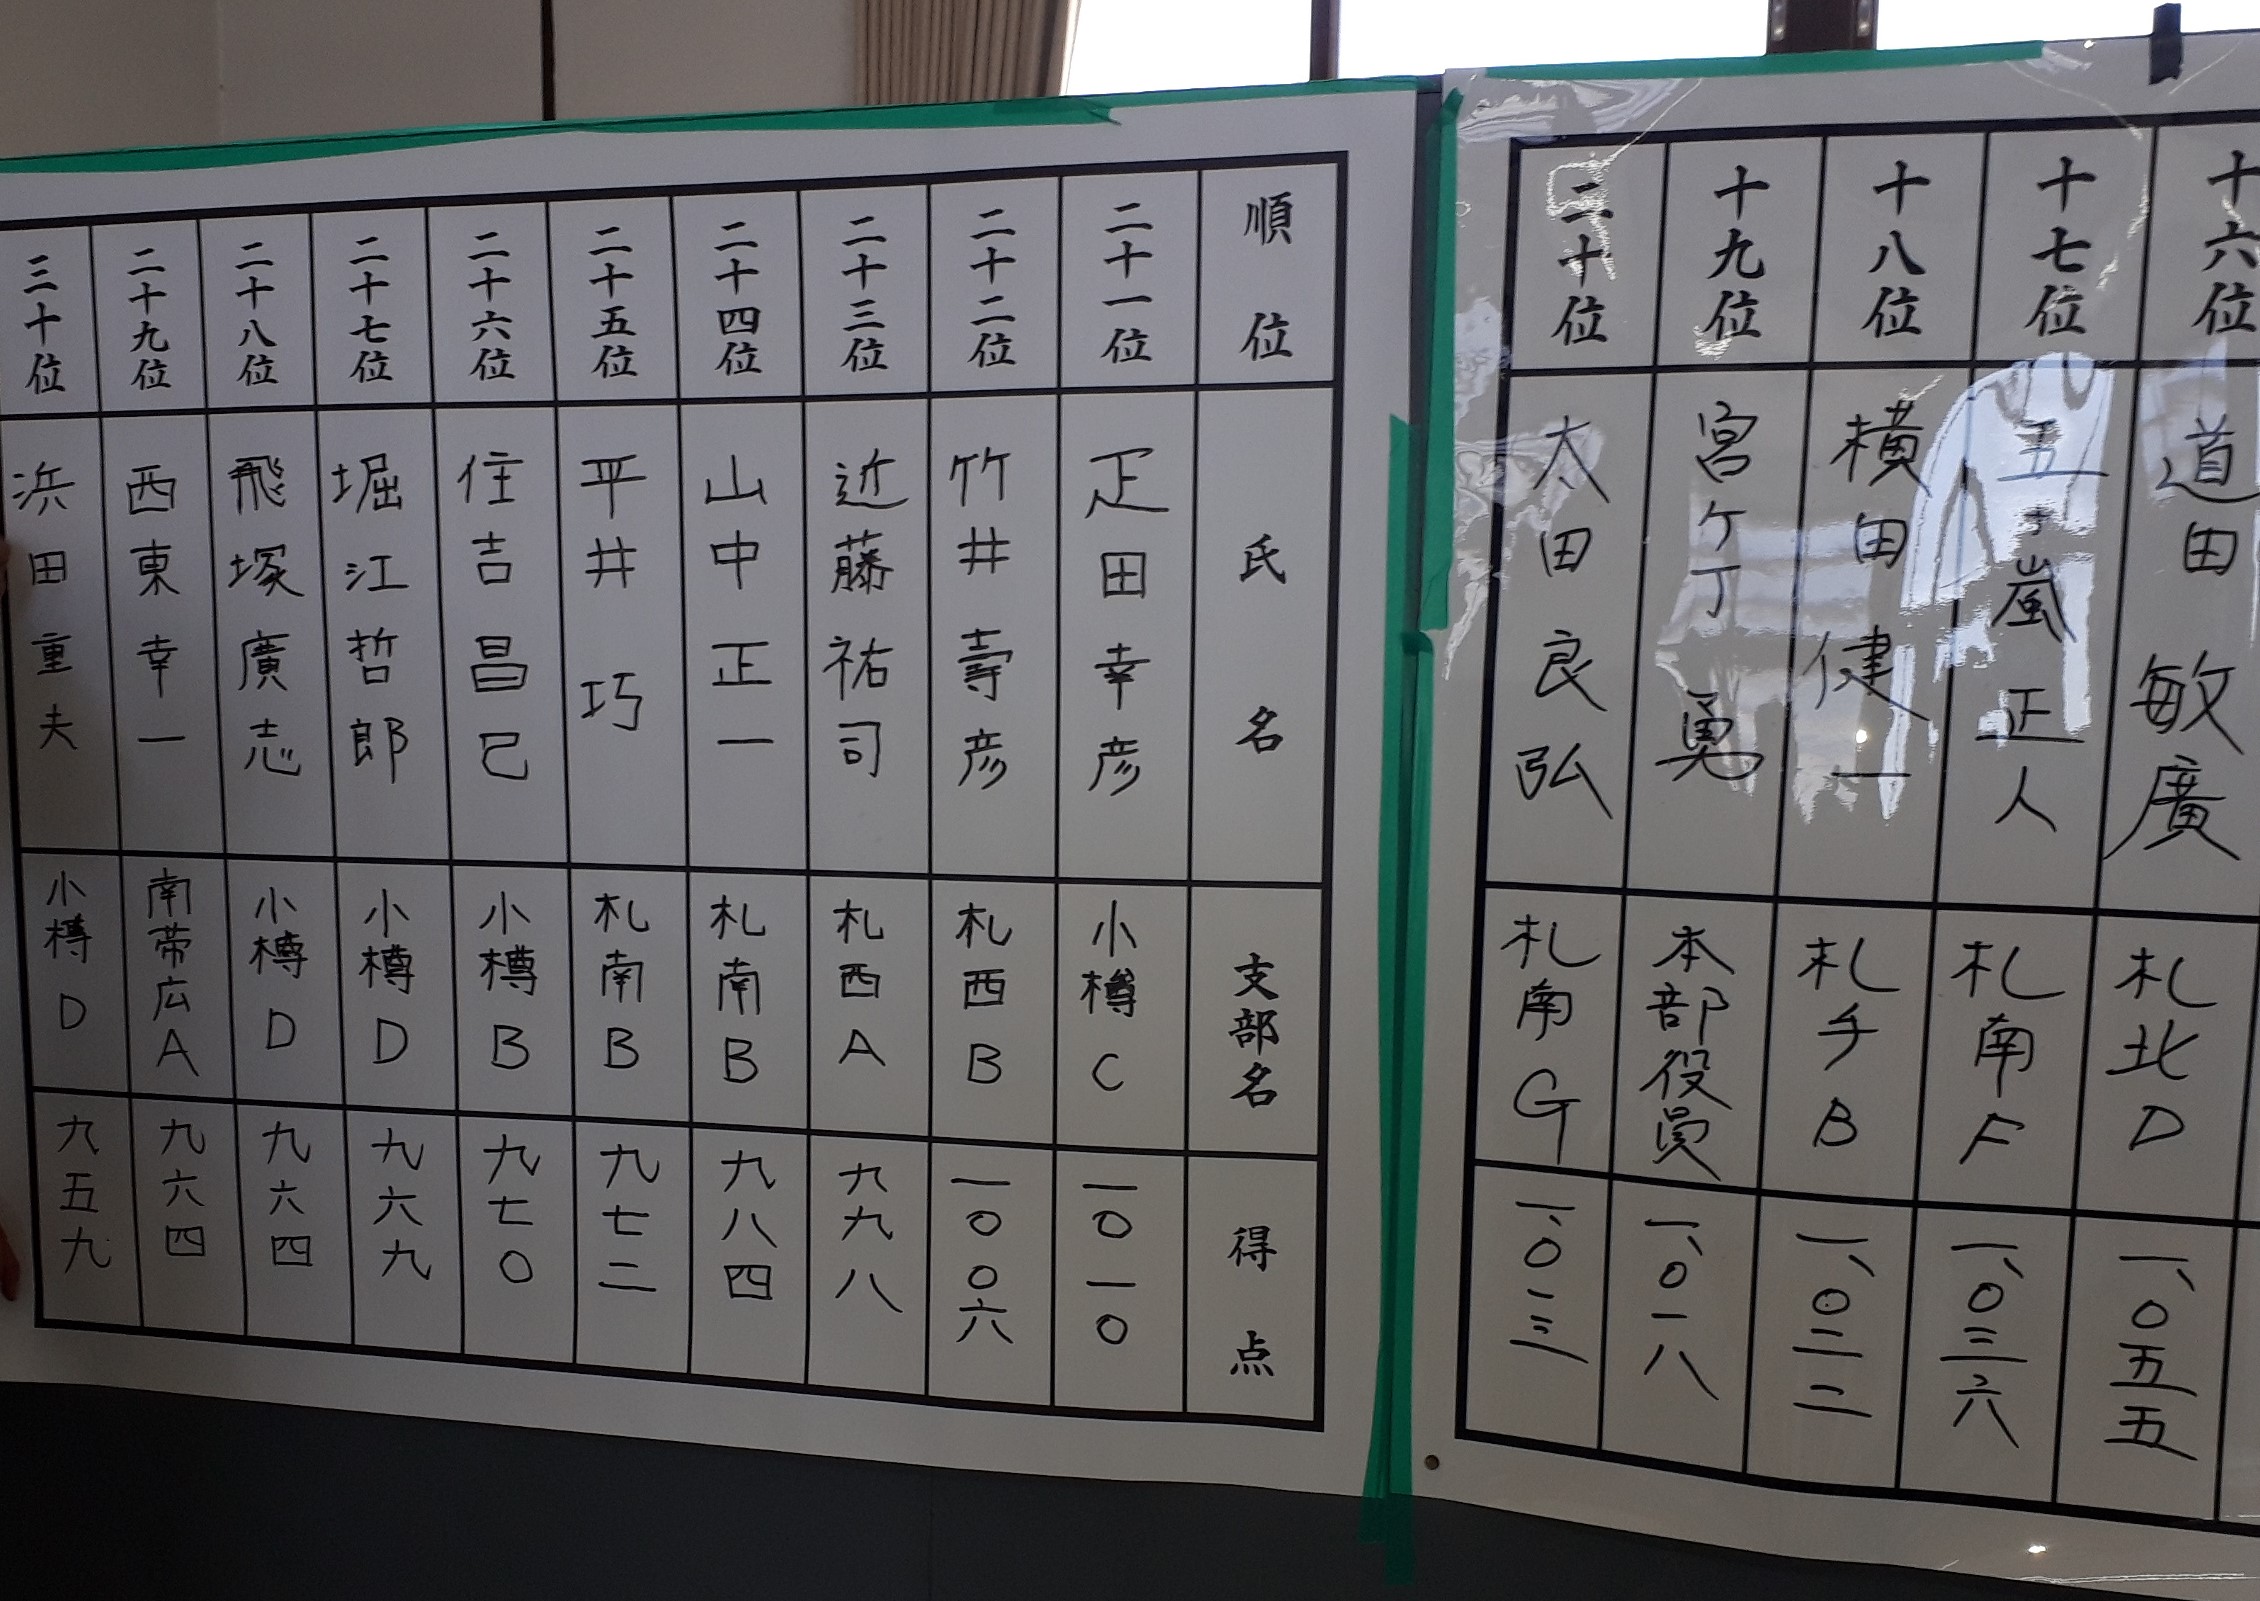 十六位 道田 敏廣 札北D 一、〇五五
十七位 五十嵐 正人 札南F 一、〇三六
十八位 横田 健一 札手B 一、〇二二
十九位 宮ケ丁 勇 本部役員 一、〇一八
二十位 太田 良弘 札南G 一、〇一三
順位 氏名 支部名 得点
二十一位 疋田 幸彦 小樽C 一〇一〇
二十二位 竹井 壽彦 札西B 一〇〇六
二十三位 近藤 祐司 札西A 九九八
二十四位 山中 正一 札南B 九八四
二十五位 平井 巧 札南B 九七二
二十六位 住吉 昌己 小樽B 九七〇
二十七位 堀江 哲郎 小樽D 九六九
二十八位 飛塚 廣志 小樽D 九六四
二十九位 西東 幸一 南帯広A 九六四
三十位 浜田 重夫 小樽D 九五九